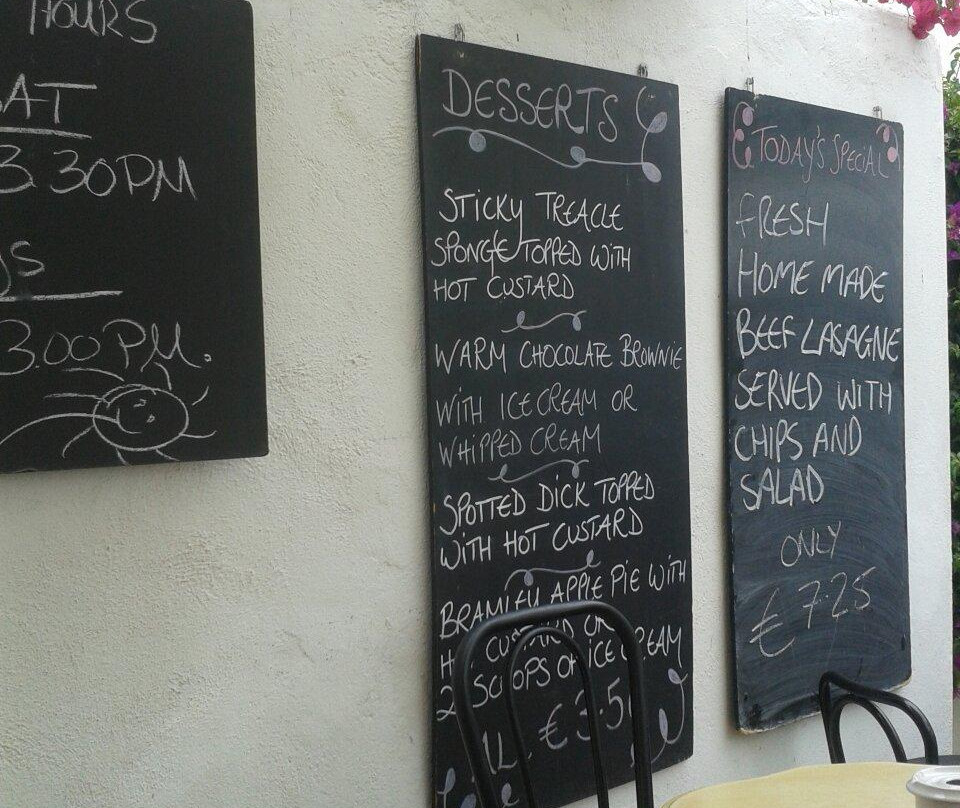 HOURS
3.30PM
3.00 PM.
DESSERTS
STICKY TREACLE
SPONGE TOPPED WITH
HOT CUSTARD
WARM CHOCOLATE BROWNIE
WITH ICE CREAM OR
WHIPPED CREAM
SPOTTED DICK TOPPED
WITH HOT CUSTARD
BRAMLEY APPLE PIE WITH
CUSTARD OR
2 SCOOPS OF ICE CREAM
ALL €3.50
TODAY'S SPECIAL
FRESH
HOME MADE
BEEF LASAGNE
SERVED WITH
CHIPS AND
SALAD
ONLY
€7.25